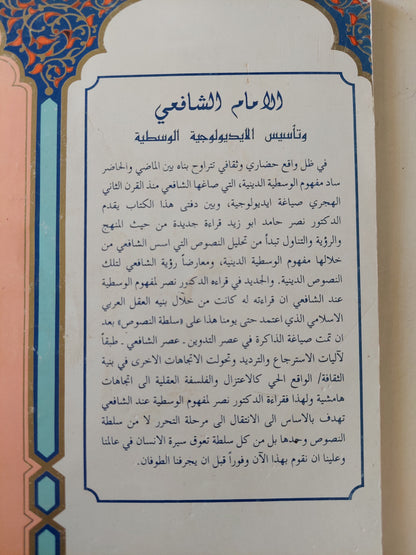 الامام الشافعي
وتأسيس الايديولوجية الوسطية
في ظل واقع حضاري وثقافي تتراوح بناه بين الماضي والحاضر
ساد مفهوم الوسطية الدينية، التي صاغها الشافعي منذ القرن الثاني
الهجري صياغة ايديولوجية، وبين دفتي هذا الكتاب يقدم
الدكتور نصر حامد ابو زيد قراءة جديدة من حيث المنهج
والرؤية والتناول تبدأ من تحليل النصوص التي اسس الشافعي من
خلالها مفهوم الوسطية الدينية، ومعارضاً رؤية الشافعي لتلك
النصوص الدينية. والجديد في قراءه الدكتور نصر لمفهوم الوسطية
عند الشافعي ان قراءته له كانت من خلال بنيه العقل العربي
الاسلامي الذي اعتمد حتى يومنا هذا على «سلطة النصوص» بعد
ان تمت صياغة الذاكرة في عصر التدوين ـ عصر الشافعي ـ طبقاً
لآليات الاسترجاع والترديد وتحولت الاتجاهات الاخرى في بنية
الثقافة/ الواقع الحي كالاعتزال والفلسفة العقلية الى اتجاهات
هامشية ولهذا فقراءة الدكتور نصر لمفهوم الوسطية عند الشافعي
تهدف بالاساس الى الانتقال الى مرحلة التحرر لا من سلطة
النصوص وحمدها بل من كل سلطة تعوق سيرة الانسان في عالمنا
وعلينا ان نقوم بهذا الآن وفوراً قبل ان يجرفنا الطوفان.